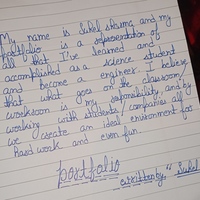 My name is Sukel sharma and my
portfolio is a representation of
all that I've learned and
accomplished as a science student
and become a engineer. I believe
that what goes on the classroom/
workroom is my responsibility, and by
working with students/companies all of
we create an ideal environment for
hard work and even fun.
portfolio
written by "Sukel